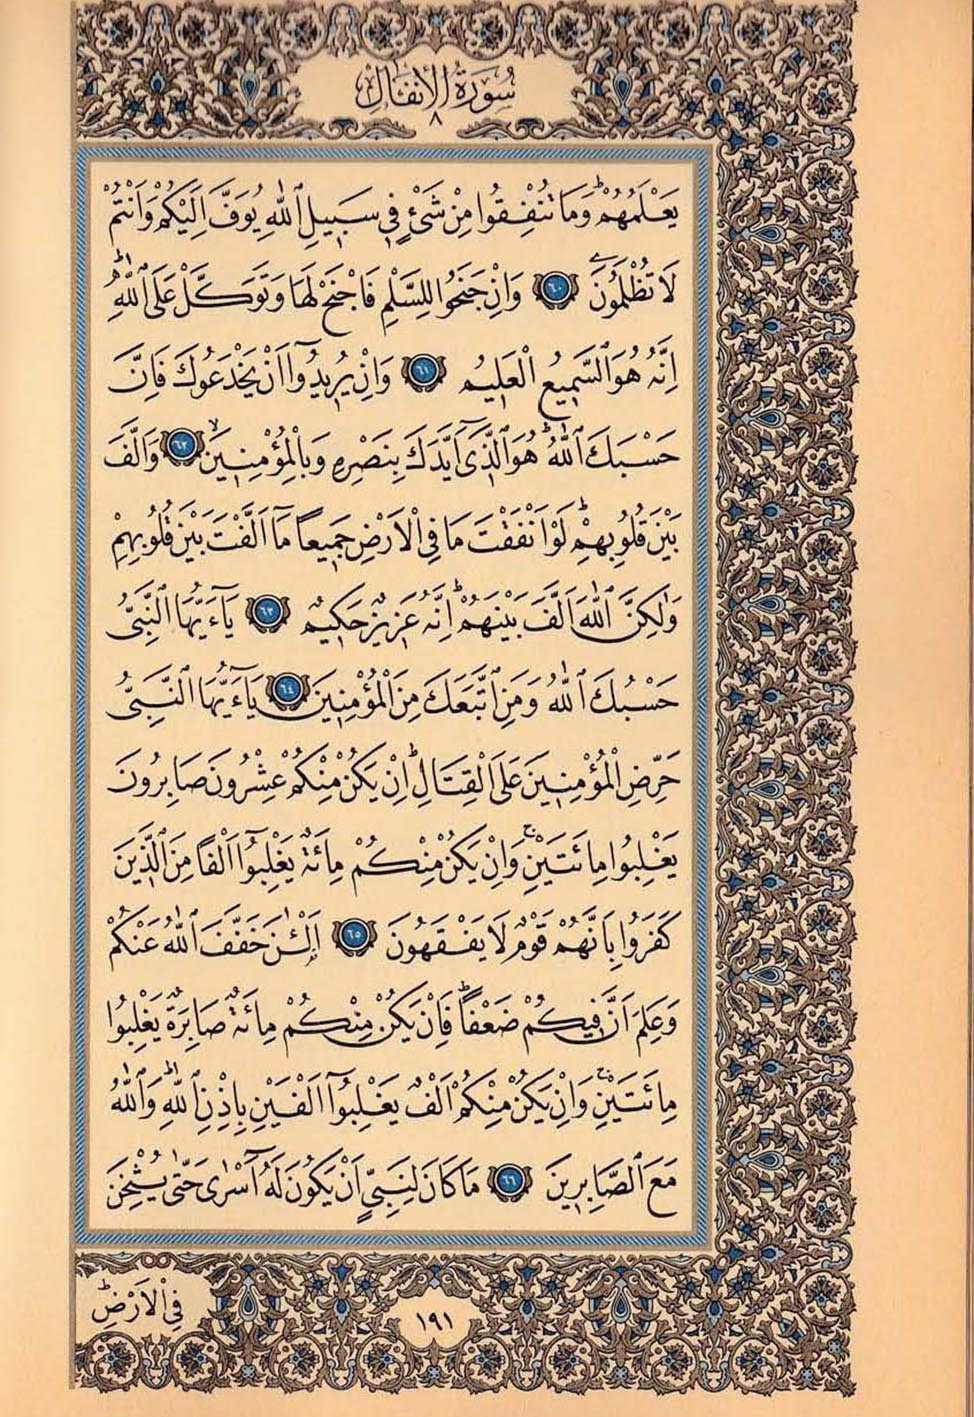 سُورَةُ الْاَنْفَالِ
٨
يَعْلَمُهُمْۜ وَمَا تُنْفِقُوا مِنْ شَیْءٍ فِي سَبِيلِ ٱللّٰهِ يُوَفَّ اِلَيْكُمْ وَاَنْتُمْ
لَا تُظْلَمُونَ ٦٠ وَاِنْ جَنَحُوا لِلسَّلْمِ فَاجْنَحْ لَهَا وَتَوَكَّلْ عَلَى ٱللّٰهِؕ
اِنَّهُ هُوَ ٱلسَّمِيعُ الْعَلِيمُ ٦١ وَاِنْ يُرِيدُٓوا اَنْ يَخْدَعُوكَ فَاِنَّ
حَسْبَكَ ٱللّٰهُؕ هُوَ ٱلَّذٓي اَيَّدَكَ بِنَصْرِهِ وَبِالْمُؤْمِنِينَۙ ٦٢ وَاَلَّفَ
بَيْنَ قُلُوبِهِمْؕ لَوْ اَنْفَقْتَ مَا فِي الْاَرْضِ جَمِيعًا مَٓا اَلَّفْتَ بَيْنَ قُلُوبِهِمْ
وَلٰكِنَّ ٱللّٰهَ اَلَّفَ بَيْنَهُمْؕ اِنَّهُ عَزِيزٌ حَكِيمٌ ٦٣ يَٓاءَيُّهَا ٱلنَّبِيُّ
حَسْبُكَ ٱللّٰهُ وَمَنِ ٱتَّبَعَكَ مِنَ الْمُؤْمِنِينَ ٦٤ يَٓاءَيُّهَا ٱلنَّبِيُّ
حَرِّضِ الْمُؤْمِنِينَ عَلَى الْقِتَالِؕ اِنْ يَكُنْ مِنْكُمْ عِشْرُونَ صَابِرُونَ
يَغْلِبُوا مِائَتَيْنِۚ وَاِنْ يَكُنْ مِنْكُمْ مِائَةٌ يَغْلِبُٓوا اَلْفًا مِنَ ٱلَّذِينَ
كَفَرُوا بِاَنَّهُمْ قَوْمٌ لَا يَفْقَهُونَ ٦٥ اَلْـٰٔنَ خَفَّفَ ٱللّٰهُ عَنْكُمْ
وَعَلِمَ اَنَّ فِيكُمْ ضَعْفًاؕ فَاِنْ يَكُنْ مِنْكُمْ مِائَةٌ صَابِرَةٌ يَغْلِبُوا
مِائَتَيْنِۚ وَاِنْ يَكُنْ مِنْكُمْ اَلْفٌ يَغْلِبُٓوا اَلْفَيْنِ بِاِذْنِ ٱللّٰهِؕ وَٱللّٰهُ
مَعَ ٱلصَّابِرِينَ ٦٦ مَا كَانَ لِنَبِيٍّ اَنْ يَكُونَ لَهُٓ اَسْرٰى حَتّٰى يُثْخِنَ
فِي الْاَرْضِؕ
١٩١